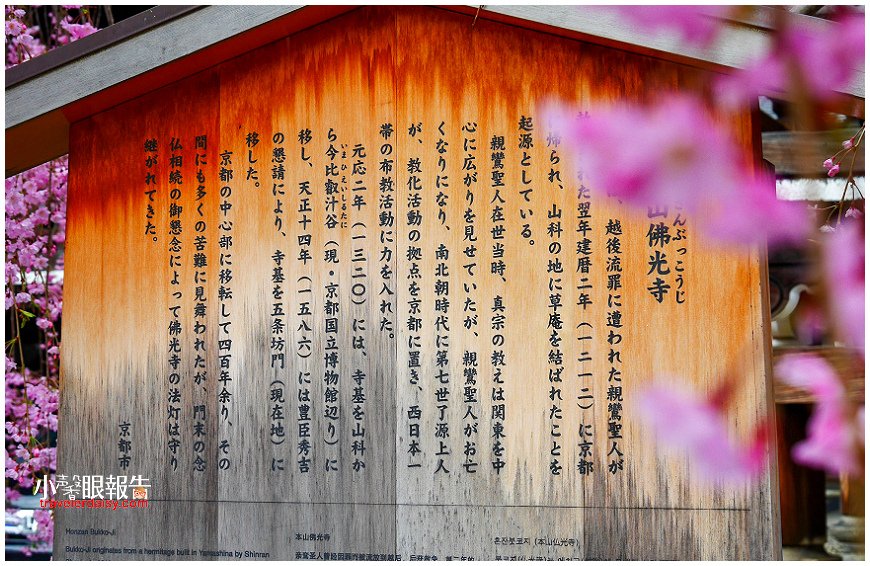 んぶっこうじ
山佛光寺
、越後流罪に遭われた親鸞聖人が
れた翌年建暦二年（一二一二）に京都
帰られ、山科の地に草庵を結ばれたことを
起源としている。
親鸞聖人在世当時、真宗の教えは関東を中
心に広がりを見せていたが、親鸞聖人がお亡
くなりになり、南北朝時代に第七世了源上人
が、教化活動の拠点を京都に置き、西日本一
帯の布教活動に力を入れた。
元応二年（一三二〇）には、寺基を山科か
いまひえいしるたに
ら今比叡汁谷（現・京都国立博物館辺り）に
移し、天正十四年（一五八六）には豊臣秀吉
の懇請により、寺基を五条坊門（現在地）に
移した。
京都の中心部に移転して四百年余り、その
間にも多くの苦難に見舞われたが、門末の念
仏相続の御懇念によって佛光寺の法灯は守り
継がれてきた。
京都市
Honzan Bukko-Ji
Bukko-Ji originates from a hermitage built in Yamashina by Shinran
本山佛光寺
혼잔붓코지（本山仏光寺）
小聲眼報告
travelerdaisy.com